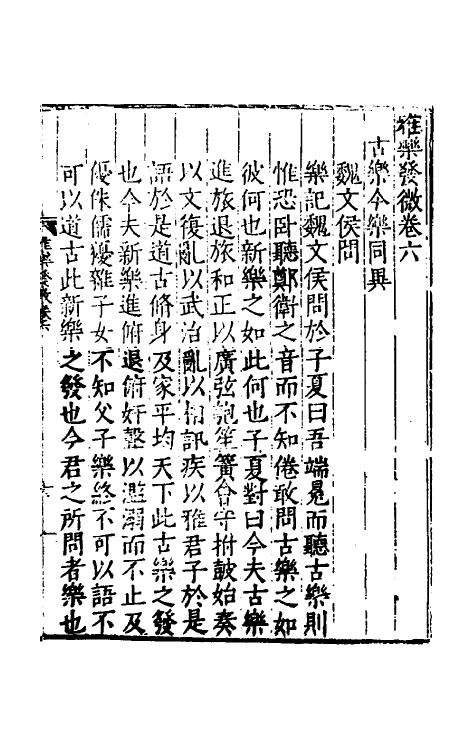 雅樂發微卷六
古樂今樂同異
魏文侯問
樂記魏文侯問於子夏曰吾端冕而聽古樂則
惟恐卧聽鄭衛之音而不知倦敢問古樂之如
彼何也新樂之如此何也子夏對曰今夫古樂
進旅退旅和正以廣弦匏笙簧合守拊鼓始奏
以文復亂以武治亂以相訊疾以雅君子於是
語於是道古脩身及家平均天下此古樂之發
也今夫新樂進俯退俯奸聲以濫溺而不止及
優侏儒獶雜子女不知父子樂終不可以語不
可以道古此新樂之發也今君之所問者樂也
雅樂發微卷六